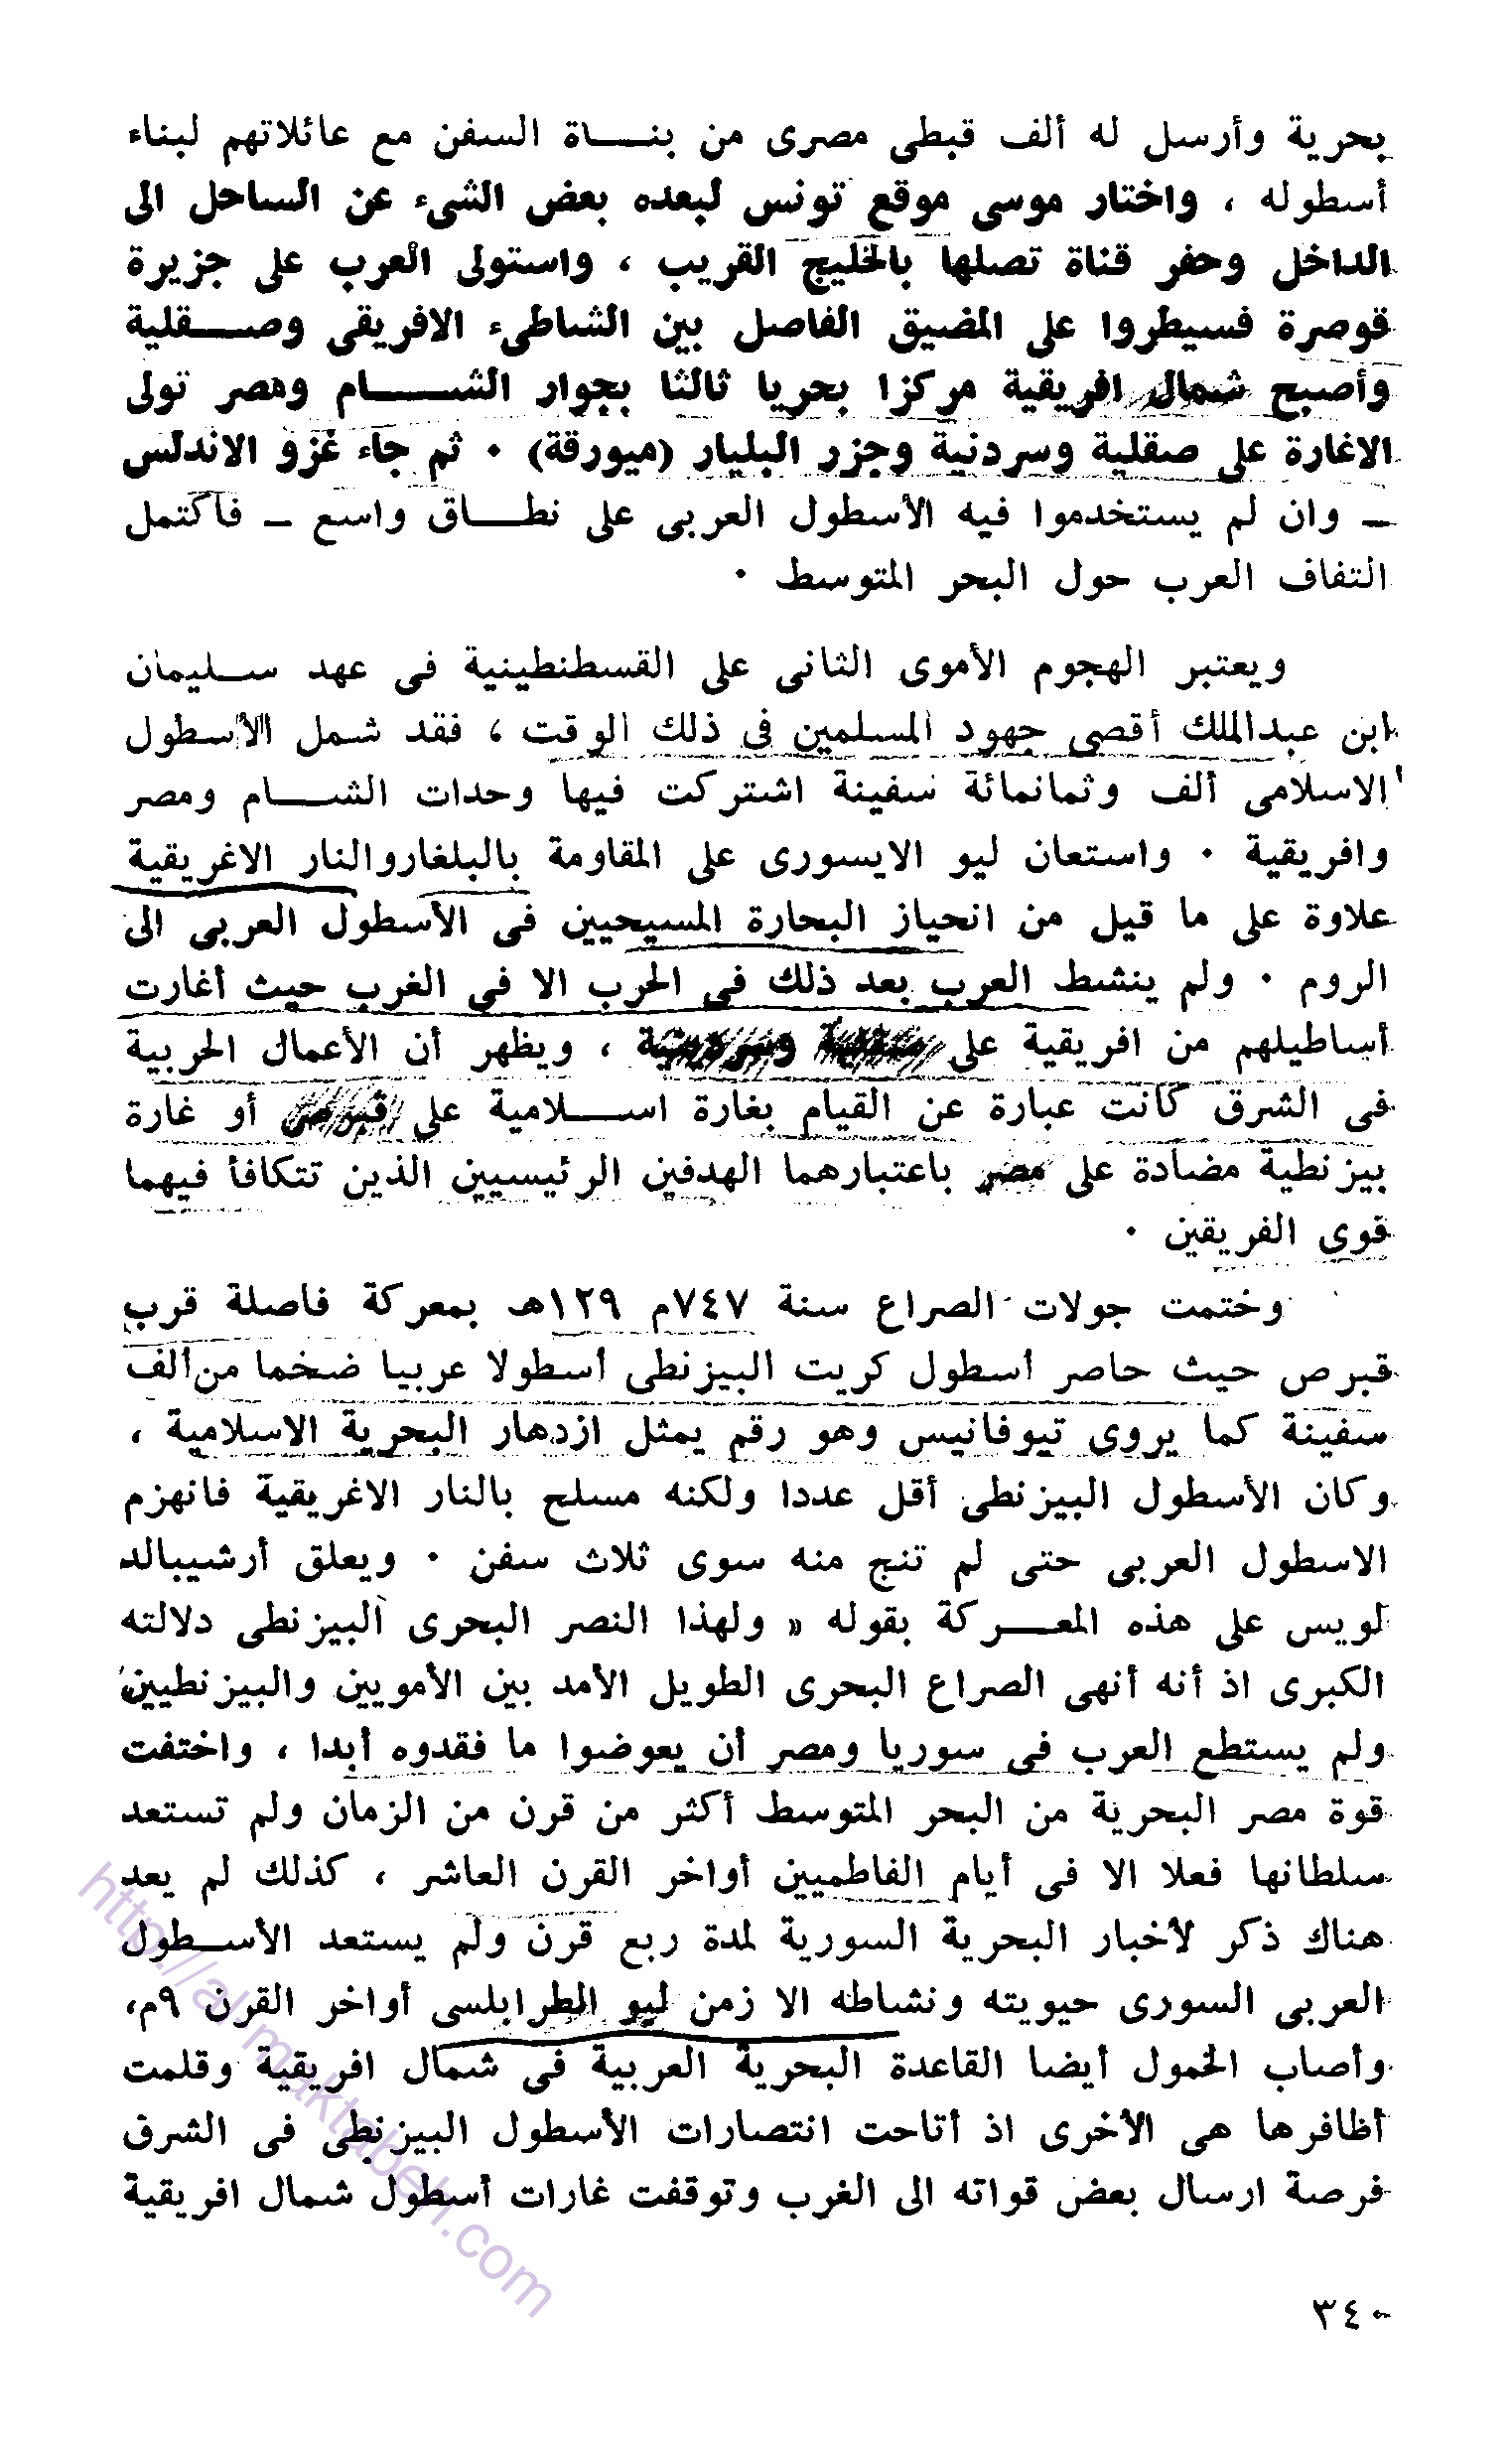 بحرية وأرسل له ألف قبطى مصرى من بنـــاة السفن مع عائلاتهم لبناء
أسطوله ، واختار موسى موقع تونس لبعده بعض الشىء عن الساحل الى
الداخل وحفر قناة تصلها بالخليج القريب ، واستولى العرب على جزيرة
قوصرة فسيطروا على المضيق الفاصل بين الشاطىء الافريقى وصـــقلية
وأصبح شمال افريقية مركزا بحريا ثالثا بجوار الشـــــام ومصر تولى
الاغارة على صقلية وسردنية وجزر البليار (ميورقة) ٠ ثم جاء غزو الاندلس
ـ وان لم يستخدموا فيه الأسطول العربى على نطـــاق واسع ـ فاكتمل
التفاف العرب حول البحر المتوسط ٠
ويعتبر الهجوم الأموى الثانى على القسطنطينية فى عهد ســليمان
ابن عبدالملك أقصى جهود المسلمين فى ذلك الوقت ، فقد شمل الأسطول
الاسلامى ألف وثمانمائة سفينة اشتركت فيها وحدات الشـــام ومصر
وافريقية ٠ واستعان ليو الايسورى على المقاومة بالبلغاروالنار الاغريقية
علاوة على ما قيل من انحياز البحارة المسيحيين فى الأسطول العربى الى
الروم ٠ ولم ينشط العرب بعد ذلك فى الحرب الا فى الغرب حيث أغارت
أساطيلهم من افريقية على صقلية وسردينية ، ويظهر أن الأعمال الحربية
فى الشرق كانت عبارة عن القيام بغارة اســـلامية على قبرص أو غارة
بيزنطية مضادة على مصر باعتبارهما الهدفين الرئيسيين الذين تتكافأ فيهما
قوى الفريقين ٠
وختمت جولات الصراع سنة ٧٤٧م ١٢٩هـ بمعركة فاصلة قرب
قبرص حيث حاصر أسطول كريت البيزنطى أسطولا عربيا ضخما من ألف
سفينة كما يروى تيوفانيس وهو رقم يمثل ازدهار البحرية الاسلامية ،
وكان الأسطول البيزنطى أقل عددا ولكنه مسلح بالنار الاغريقية فانهزم
الاسطول العربى حتى لم تنج منه سوى ثلاث سفن ٠ ويعلق أرشيبالد
لويس على هذه المعـــركة بقوله « ولهذا النصر البحرى البيزنطى دلالته
الكبرى اذ أنه أنهى الصراع البحرى الطويل الأمد بين الأمويين والبيزنطيين
ولم يستطع العرب فى سوريا ومصر أن يعوضوا ما فقدوه أبدا ، واختفت
قوة مصر البحرية من البحر المتوسط أكثر من قرن من الزمان ولم تستعد
سلطانها فعلا الا فى أيام الفاطميين أواخر القرن العاشر ، كذلك لم يعد
هناك ذكر لأخبار البحرية السورية لمدة ربع قرن ولم يستعد الأســطول
العربى السورى حيويته ونشاطه الا زمن ليو الطرابلسى أواخر القرن ٩م،
وأصاب الخمول أيضا القاعدة البحرية العربية فى شمال افريقية وقلمت
أظافرها هى الأخرى اذ أتاحت انتصارات الأسطول البيزنطى فى الشرق
فرصة ارسال بعض قواته الى الغرب وتوقفت غارات أسطول شمال افريقية
٣٤٠
http://al-maktabeh.com